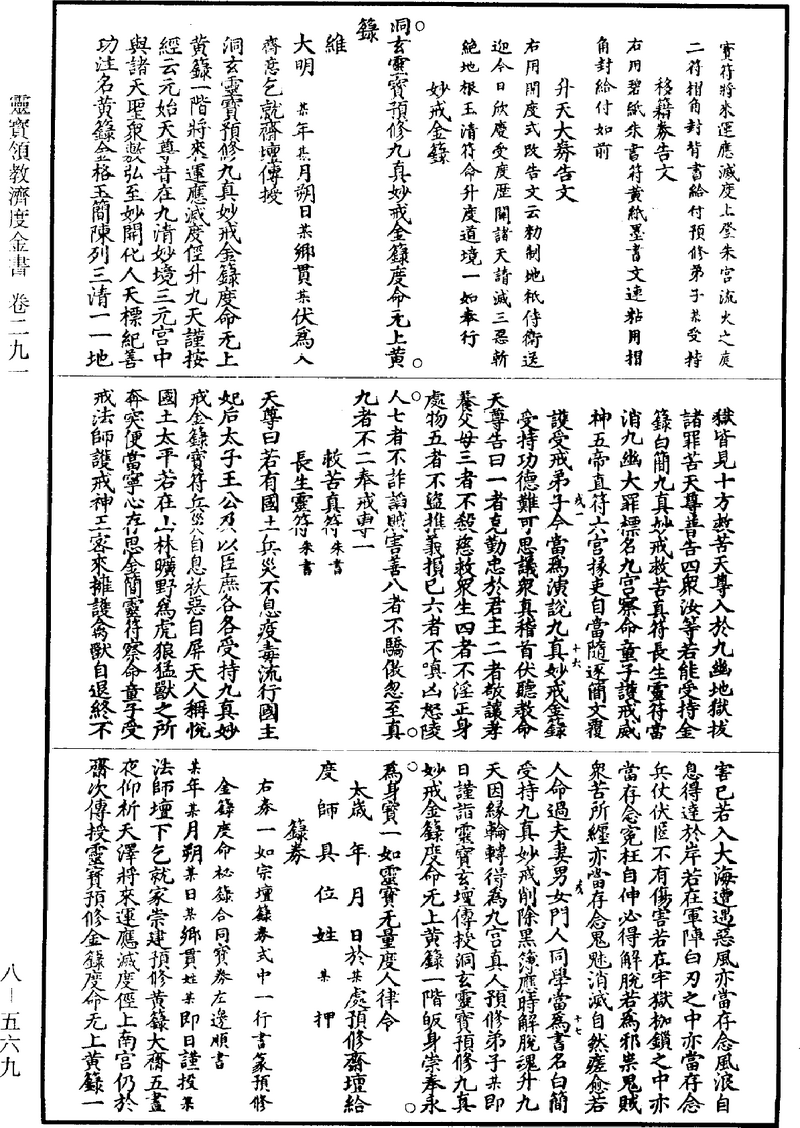 寳符將來運應滅度上登朱宮流火之庭
二符摺角封背書給付預修弟子某受持
移籍券告文
右用碧紙朱書符黃紙墨書文連粘用摺
角封給付如前
升天大券告文
右用開度式改告文云勑制地祇侍衛送
迎今日欣慶受度歷關諸天請滅三惡斬
絕地根玉清符命升度道境一如奉行
妙戒金籙
洞玄靈寶預修九真妙戒金籙度命无上黃
籙
維
大明 某年某月朔日某鄉貫某伏爲入
齋意乞就齋壇傳授
洞玄靈寶預修九真妙戒金籙度命无上
黃籙一階將來運應滅度徑升九天謹按
經云元始天尊昔在九清妙境三元宮中
與諸天聖衆敷弘至妙開化人天標紀善
功注名黃籙金格玉簡陳列三清一一地
獄皆見十方救苦天尊入於九幽地獄拔
諸罪苦天尊普告四衆汝等若能受持金
籙白簡九真妙戒救苦真符長生靈符當
消九幽大罪標名九宮察命童子護戒威
神五帝直符六宮掾吏自當隨逐簡文覆
護受戒弟子今當爲演說九真妙戒金籙
受持功德難可思議衆真稽首伏聽教命
天尊告曰一者克勤忠於君主二者敬讓孝
養父母三者不殺慈救衆生四者不淫正身
處物五者不盜推義損己六者不嗔凶怒陵
人七者不詐諂賊害善八者不驕傲忽至真
九者不二奉戒專一
救苦真符朱書
長生靈符朱書
天尊曰若有國土兵災不息疫毒流行國主
妃后太子王公及以臣庶各各受持九真妙
戒金籙寶符兵災自息祅惡自屏天人稱悅
國土太平若在山林曠野爲虎狼猛獸之所
奔突便當寧心存思金簡靈符察命童子受
戒法師護戒神王密來擁護禽獸自退終不
害已若入大海遭遇惡風亦當存念風浪自
息得達於岸若在軍陣白刃之中亦當存念
兵仗伏匿不有傷害若在牢獄枷鎖之中亦
當存念寃枉自伸必得解脫若爲邪祟鬼賊
衆苦所纏亦當存念鬼魅消滅自然痊愈若
人命過夫妻男女門人同學當爲書名白簡
受持九真妙戒削除黑簿應時解脫魂升九
天因緣輪轉得爲九宮真人預修弟子某即
日謹詣靈寶玄壇傳授洞玄靈寶預修九真
妙戒金籙度命无上黃籙一階皈身崇奉永
爲身寶一如靈寶无量度人律令
太歲 年 月 日於某處預修齋壇給
度 師 具 位 姓 某 押
籙券
右券一如宗壇籙券式中一行書篆預修
金籙度命秘籙合同寶券左邊順書
某年某月朔某日某鄉貫姓某即日謹投某
法師壇下乞就家崇建預修黃籙大齋五晝
夜仰祈天澤將來運應滅度徑上南宮仍於
齋次傳授靈寶預修金籙度命无上黃籙一
靈寶領教濟度金書 卷二九一
八－五六九